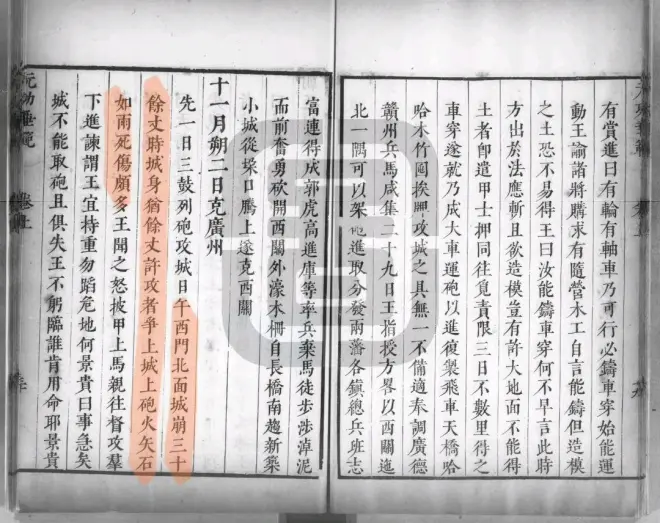 有賞進曰有輪有軸車乃可行必鑄車穿始能運
動王諭諸將購求有隨營木工自言能鑄但造模
之土恐不易得王曰汝能鑄車穿何不早言此時
方出於法應斬且欲造模豈有許大地面不能得
土者卽遣甲士押同往覓責限三日不數里得之
車穿遂就乃成大車運砲以進復製飛車天橋哈
哈木竹囤挨牌攻城之具無一不備適奉調廣德
贛州兵馬咸集二十九日王指授方畧以西關迤
北一隅可以架砲進取分發兩藩各鎮總兵班志
富連得成郭虎高進庫等率兵棄馬徒步涉淖泥
而前奮勇砍開西關外濠木柵自長橋南趨新築
小城從垜口騰上遂克西關
十一月朔二日克廣州
先一日三鼓列砲攻城日午西門北面城崩三十
餘丈時城身猶餘丈許攻者爭上城上砲火矢石
如雨死傷頗多王聞之怒披甲上馬親往督攻羣
下進諫謂王宜持重勿蹈危地何景貴曰事急矣
城不能取砲且俱失王不躬臨誰肯用命耶景貴
元功垂範 卷上